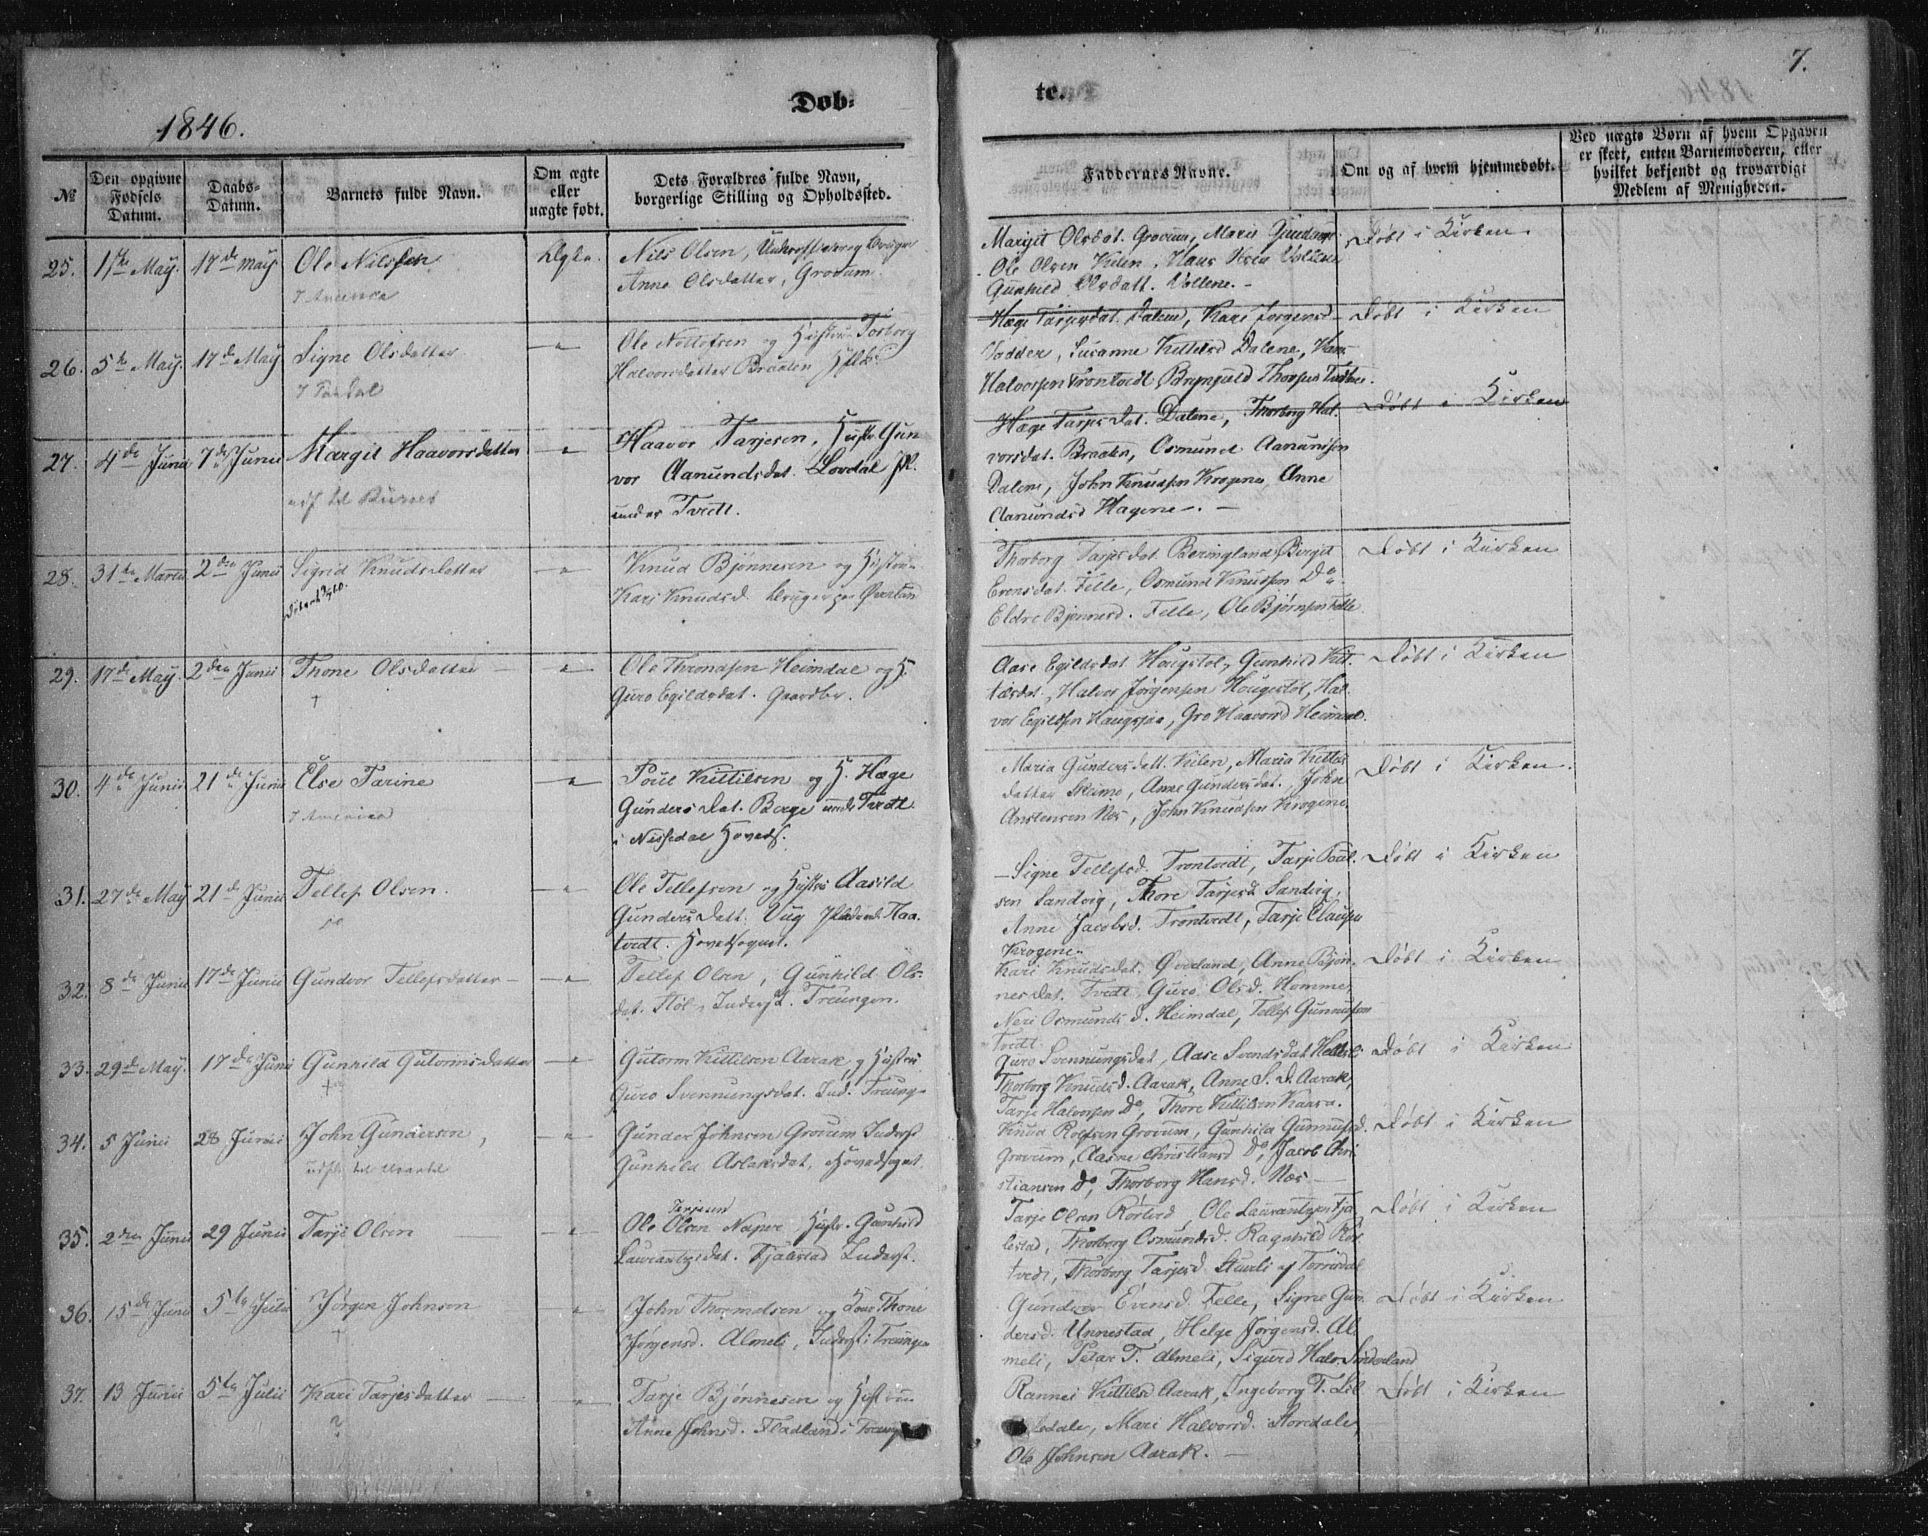 7.
Døb-
te.
1846.
№
Den opgivne Fødsels Datum.
Daabs-Datum.
Barnets fulde Navn.
Om ægte eller uægte født.
Dets Forældres fulde Navn, borgerlige Stilling og Opholdssted.
Faddernes Navne.
Om og af hvem hjemmedøbt.
Ved uægte Børn af hvem Opgaven er skeet, enten Barnemoderen, eller hvilket bekjendt og troværdigt Medlem af Menigheden.
25. 1ste May. 17de May. Ole Nilssen Ægte. Nils Olsen,
Anne Olsdatter, Grovum.
Margit Olsdat. Grovum,
Ole Olsen Kilen,
Gunhild Olsdatt. Vollene. -
Døbt i Kirken.
26. 5te May. 17de May Signe Olsdatter Ole Nottolfsen og Hustru Torborg
Halvorsdatter Braaten
Hæge Tarjesdat. Dalene, Kari Jørgensd.
Susanne Kittilsd Dalene,
Halvorsen Trontvedt
Døbt i Kirken
27. 4de Junii 7de Junii Margit Haavorsdatter Haavor Tarjesen, Hustr. Gun
vor Aanundsdat. Lovdal Pl.
under Tvedt.
Hæge Tarjesdat. Dalene, Thorborg Hal.
vorsdat. Braaten, Osmund Aanundsen
Dalene, John Knudsen Krogene, Anne
Aanundsd Hagene. -
Døbt i Kirken
28. 31te Martii 2den Junii Sigrid Knudsdatter Knud Bjønnesen og Hustru
Kari Knudsd. Bruger paa Øverland
Thorborg Tarjesdat. Berget
Evensdat. Felle, Osmund Knudsen Do
Eldre Bjønnesd. Felle, Ole Bjørnsen Felle
Døbt i Kirken
29. 17de May. 2den Junii Thone Olsdatter Ole Throndsen Heimdal og H.
†
Guro Egildsdat. Gaardbr.
Aase Egildsdat Haugstol, Gunhild Kit.
telsdat, Halvor Jørgensen Haugstol, Hal.
vor Egildsen Haugsjaa, Gro Haavord Heimdal.
Døbt i Kirken
30. 4de Junii 21de Junii Else Tarine Poul Kittilsen og H. Hæge
7 America
Gundersdat. Berge under Tvedt
i Nissedal Hoveds.
Maria Gundersdatt. Kilen, Maria Kittels
datter Skeimo, Anne Gundersdat. John
Anstensen Næs, John Knudsen Krogene.
Døbt i Kirken.
31. 27de May 21de Junii Tellef Olsen. Ole Tellefsen og Hustru Aasild
Gundersdatt.
tvedt. Hovedsognet.
Signe Tellefsd. Trontvedt, Tarje Poul.
sen Sandvig, Thore Tarjesd. Sandvig,
Anne Jacobsd. Trontvedt, Tarje Clausen
Krogene.
Døbt i Kirken
32. 8de Junii 17de Junii Gundvor Tellefsdatter Tellef Olsen, Gunhild Ols-
dat. Støl, Inderst. Treungen.
Kari Knudsdat. Øverland, Anne Bjøn.
nesdat. Tvedt, Guro Olsd. Homme,
Neri Osmundsd. Heimdal, Tellef Gunnufsen
Tvedt.
Døbt i Kirken
33. 29de May. 17de Junii Gunhild Gutormsdatter Gutorm Kittilsen Aarak, og Hustru
Guro Svennungsdat. Ind. Treung-
Guro Svennungsdat, Aase Svendsdat
Thorborg Knudsd. Aarak, Anne S. D. Aarak,
Tarje Halvorsen Do, Thore Kittilsen Kaasa.
Døbt i Kirken
34. 5 Junii 28 Junii John Gundersen, Gunder Johnsen Grovum Inderst
Gunhild Aslaksdat, Hovedsognet
Knud Rolfsen Grovum, Gunhild Gunnufsd.
Grovum, Aasne Christiansd Do, Jacob Chri
stiansen Do, Thorborg Hansd. Næs -
Døbt i Kirken
35. 2den Junii 29 Junii Tarje Olsen Ole Olsen Naper Hustr. Gunhild
Tarjesen
Laurantzedat. Fjalestad Inderst.
Tarje Olsen Ole Laurantzen Fja
lestad, Thorborg Osmundsd. Ragnhild
tvedt, Thorborg Tarjesd.
Døbt i Kirken
36. 15de Junii 5te Julii Jørgen Johnsen John Thormodsen og Kone Thone
†
Jørgensd. Almeli, Inderst i Treungen
Gundvor Evensd. Felle, Signe Gun.
dersd. Unnestad, Helge Jørgensd. Al
meli, Petar T. Almeli, Sigurd Halv.
Døbt i Kirken
37. 13 Junii 5te Julii Kari Tarjesdatter Tarje Bjønnesen og Hustru
Anne Johnsd. Fladland i Treung
Rannei Kittilsd Aarak, Ingeborg T. Lil
dale, Mari Halvorsd. Storedale,
Ole Johnsen Aarak. -
Døbt i Kirken